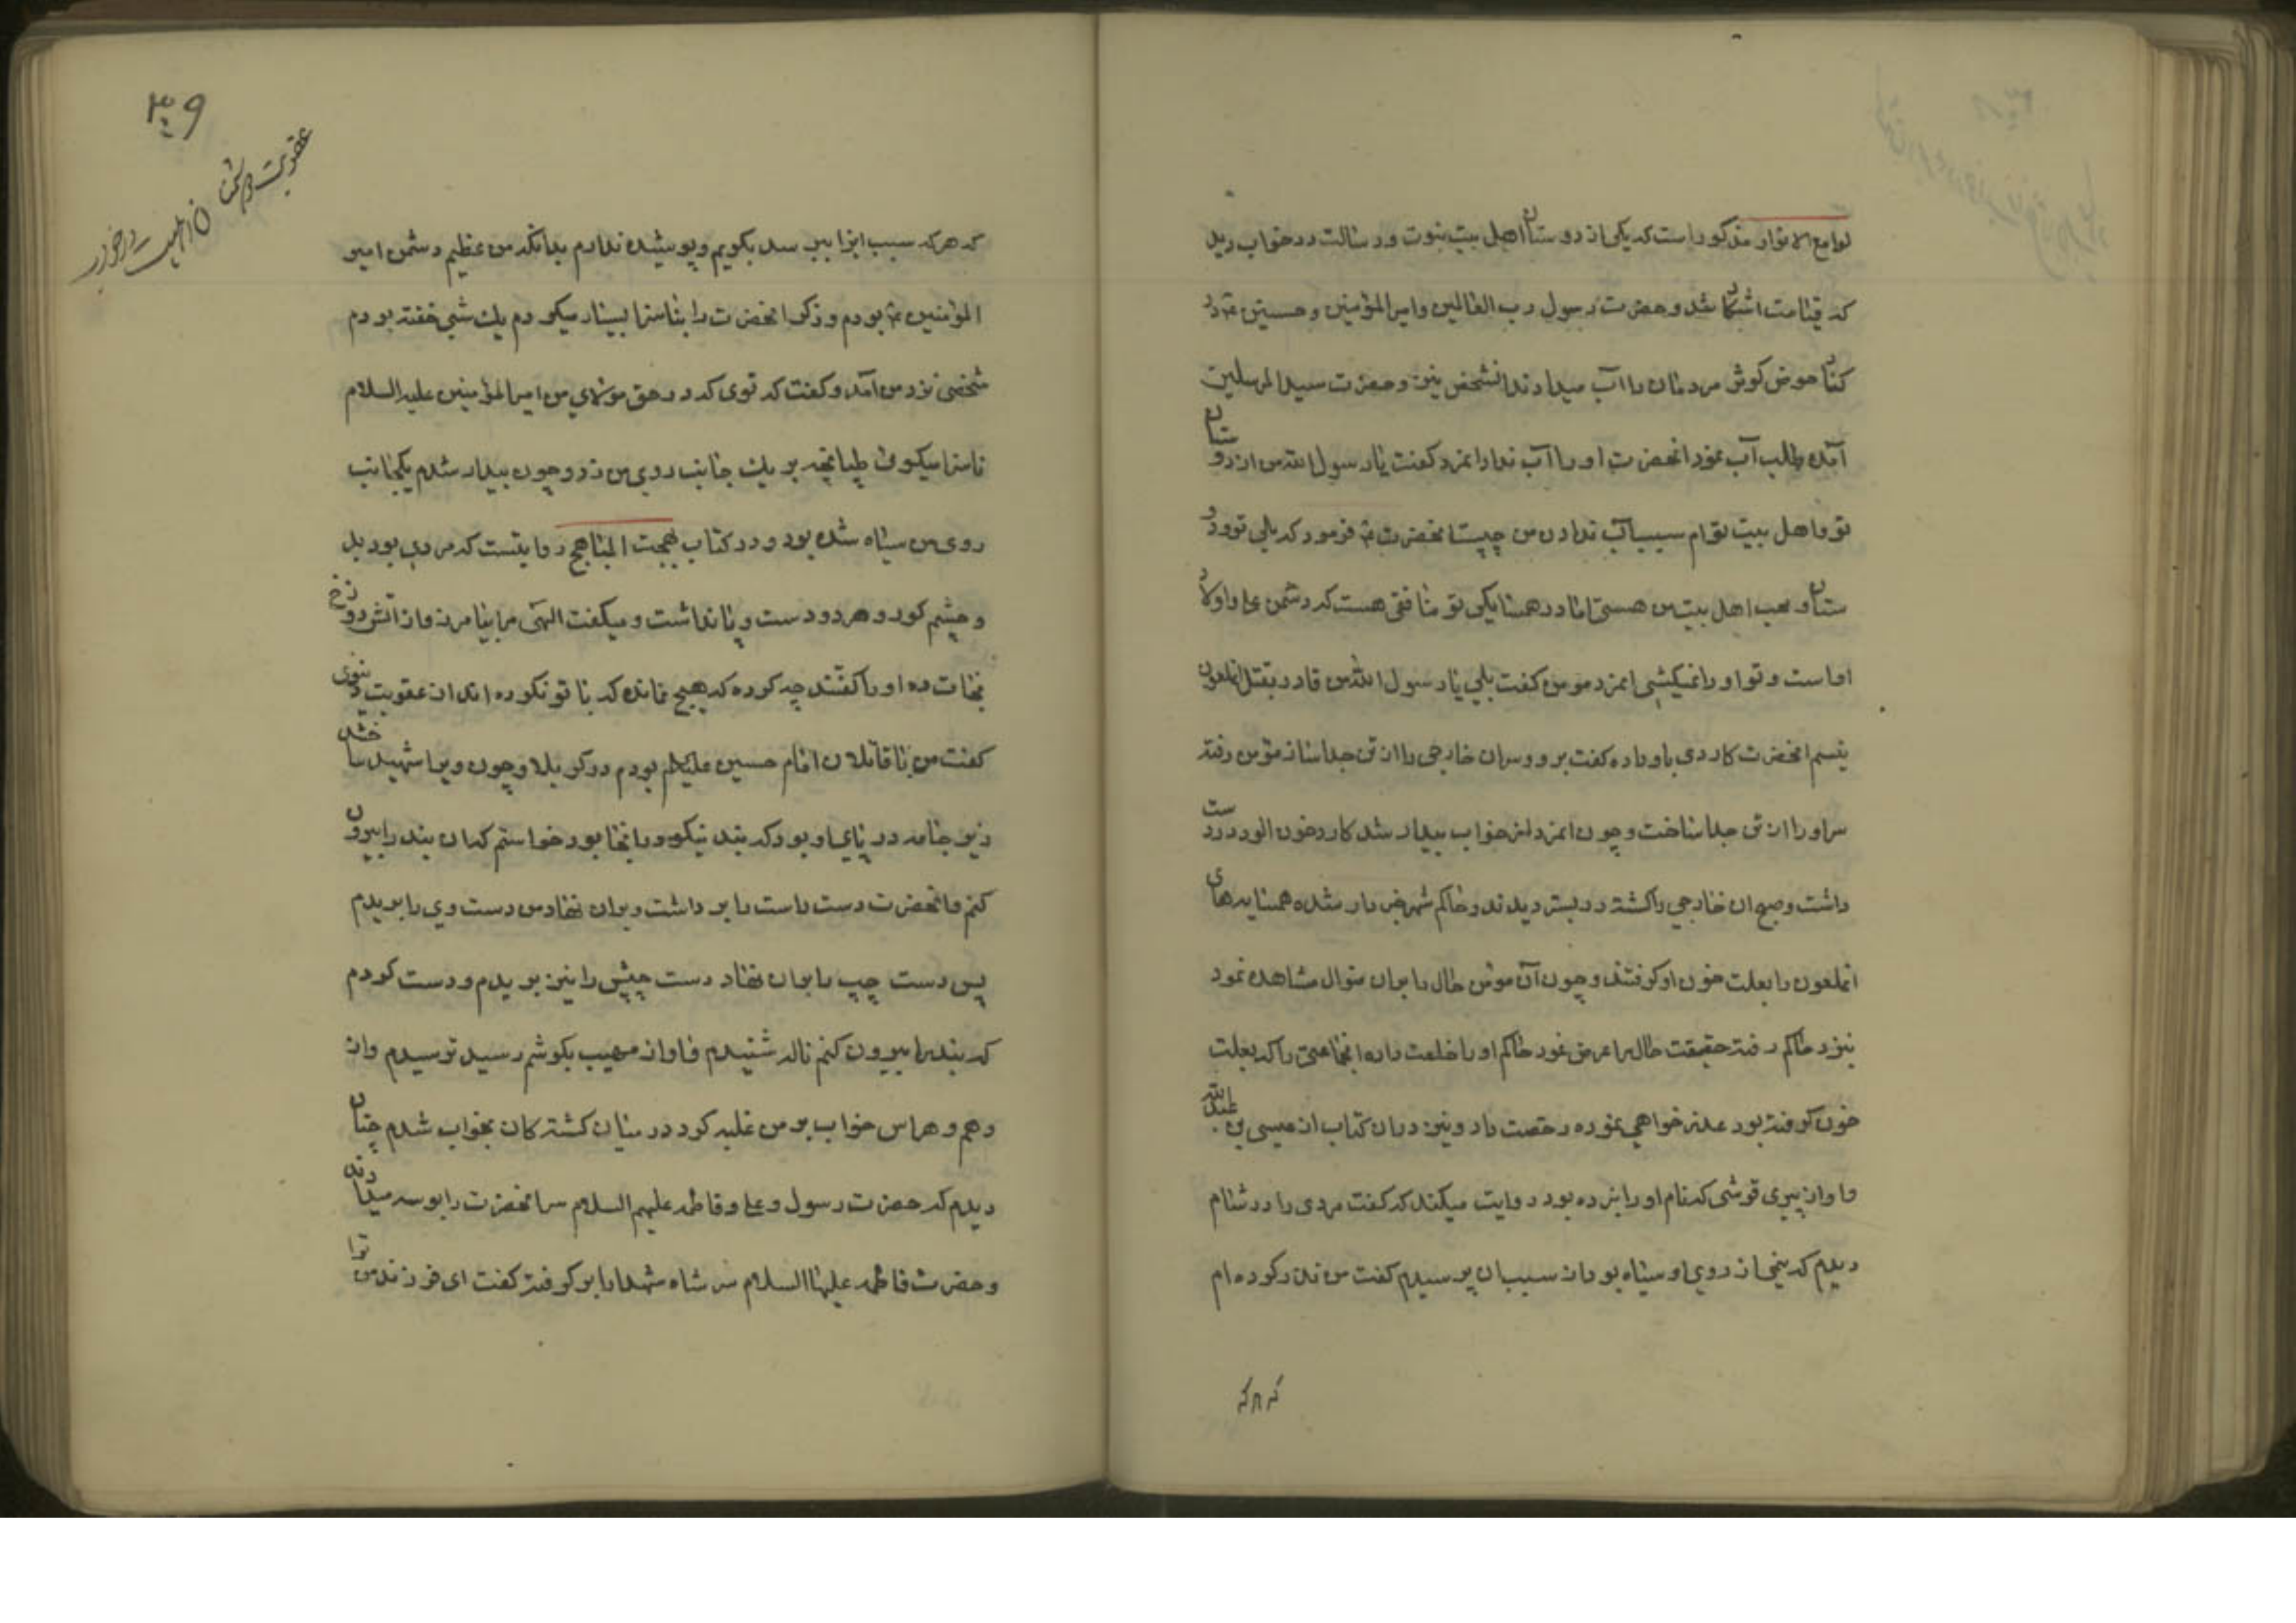 لوامع الانوار مذکور است که یکی از دوستان اهل بیت نبوت و رسالت در خواب دید
که قیامت اشکا شد و حضرت رسول رب العالمین و امیر المؤمنین و حسنین ع در
کنار حوض کوثر مردمان را آب میدادند انشخص نیز و حضرت سید المرسلین
آمده طلب آب نمود انحضرت او را آب نداد انمرد کفت یا رسول الله من از دوستان
تو و اهل بیت توام سبب آب ندادن من چیست انحضرت ع فرمود که بلی تو دو
ستان و محب اهل بیت من هستی اما در همسایکی تو منافقی هست که دشمن علی و اولاد
او است و تو او را نمیکشی انمرد مومن کفت بلی یا رسول الله من قادر بقتل انملعون
نیستم انحضرت کاردی باو داده کفت برو و سر ان خارجی را از تن جدا ساز مؤمن رفته
سر او را از تن جدا ساخت و چون انمرد از خواب بیدار شد کارد خون الود در دست
داشت و صبح ان خارجی را کشته در بستر دیدند و حاکم شهر خبردار شده همسایه های
انملعون را بعلت خون او کرفتند و چون آن مومن حال را بران منوال مشاهده نمود
بنزد حاکم رفته حقیقت حال را عرض نمود حاکم او را خلعت داده انجماعتی را که بعلت
خون کرفته بود عذر خواهی نموده رخصت داد و نیز در ان کتاب از عیسی بن عبدالله
و او از پیری قرشی که نام او را نبرده بود روایت میکند که کفت مردی را در شام
دیدم که نیمی از روی او سیاه بود از سبب ان پرسیدم کفت من نذر کرده ام
که هر که
۳۰۹
عقوبت دشمنان اهلبیت در خواب
که هر که سبب انرا پرسد بکویم و پوشیده ندارم بدانکه من عظیم دشمن امیر
المؤمنین ع بودم و ذکر انحضرت را بناسزا بسیار میکردم یک شبی خفته بودم
شخصی نزد من آمد و کفت که توی که در حق مولای من امیر المؤمنین علیه السلام
ناسزا میکوئی طپانچه بر یک جانب روی من زد و چون بیدار شدم یکجانب
روی من سیاه شده بود و در کتاب بهجت المباهج روایتست که مردی بود بد
و چشم کور و هر دو دست و پا نداشت و میکفت الهی مرا بیامرز و از اتش دوزخ
نجات ده او را کفتند چه کرده که هیچ نمانده که با تو نکرده اند از عقوبت دنیوی
کفت من با قاتلان امام حسین علیه السلام بودم در کربلا و چون ویرا شهید ساختند
زیر جامه در پای او بود که بند نیکو در انجا بود خواستم که ان بند را بیرون
کنم و انحضرت دست راست را بر داشت و بران نهاد من دست وی را بریدم
پس دست چپ را بران نهاد دست چپش را نیز بریدم و دست کردم
که بند را بیرون کنم ناله شنیدم و اواز مهیب بکوشم رسید ترسیدم و از
وهم و هراس خواب بر من غلبه کرد در میان کشته کان بخواب شدم چنان
دیدم که حضرت رسول و علی و فاطمه علیهم السلام سر انحضرت را بوسه میدادند
و حضرت فاطمه علیها السلام سر شاه شهدا را بر کرفته کفت ای فرزند من ترا